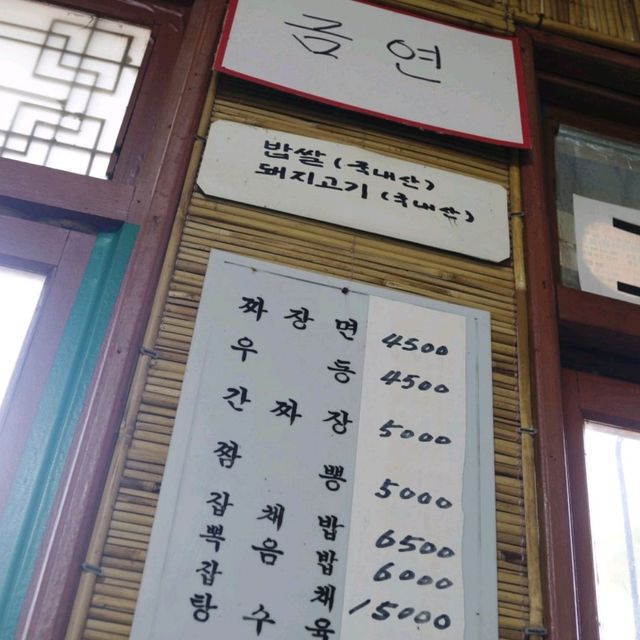 금연
밥쌀 (국내산)
돼지고기 (국내산)
짜 장 면 4500
우 동 4500
간 짜 장 5000
짬 뽕 5000
잡 채 밥 6500
뽁 음 밥 6000
잡 채 15000
탕 수 육